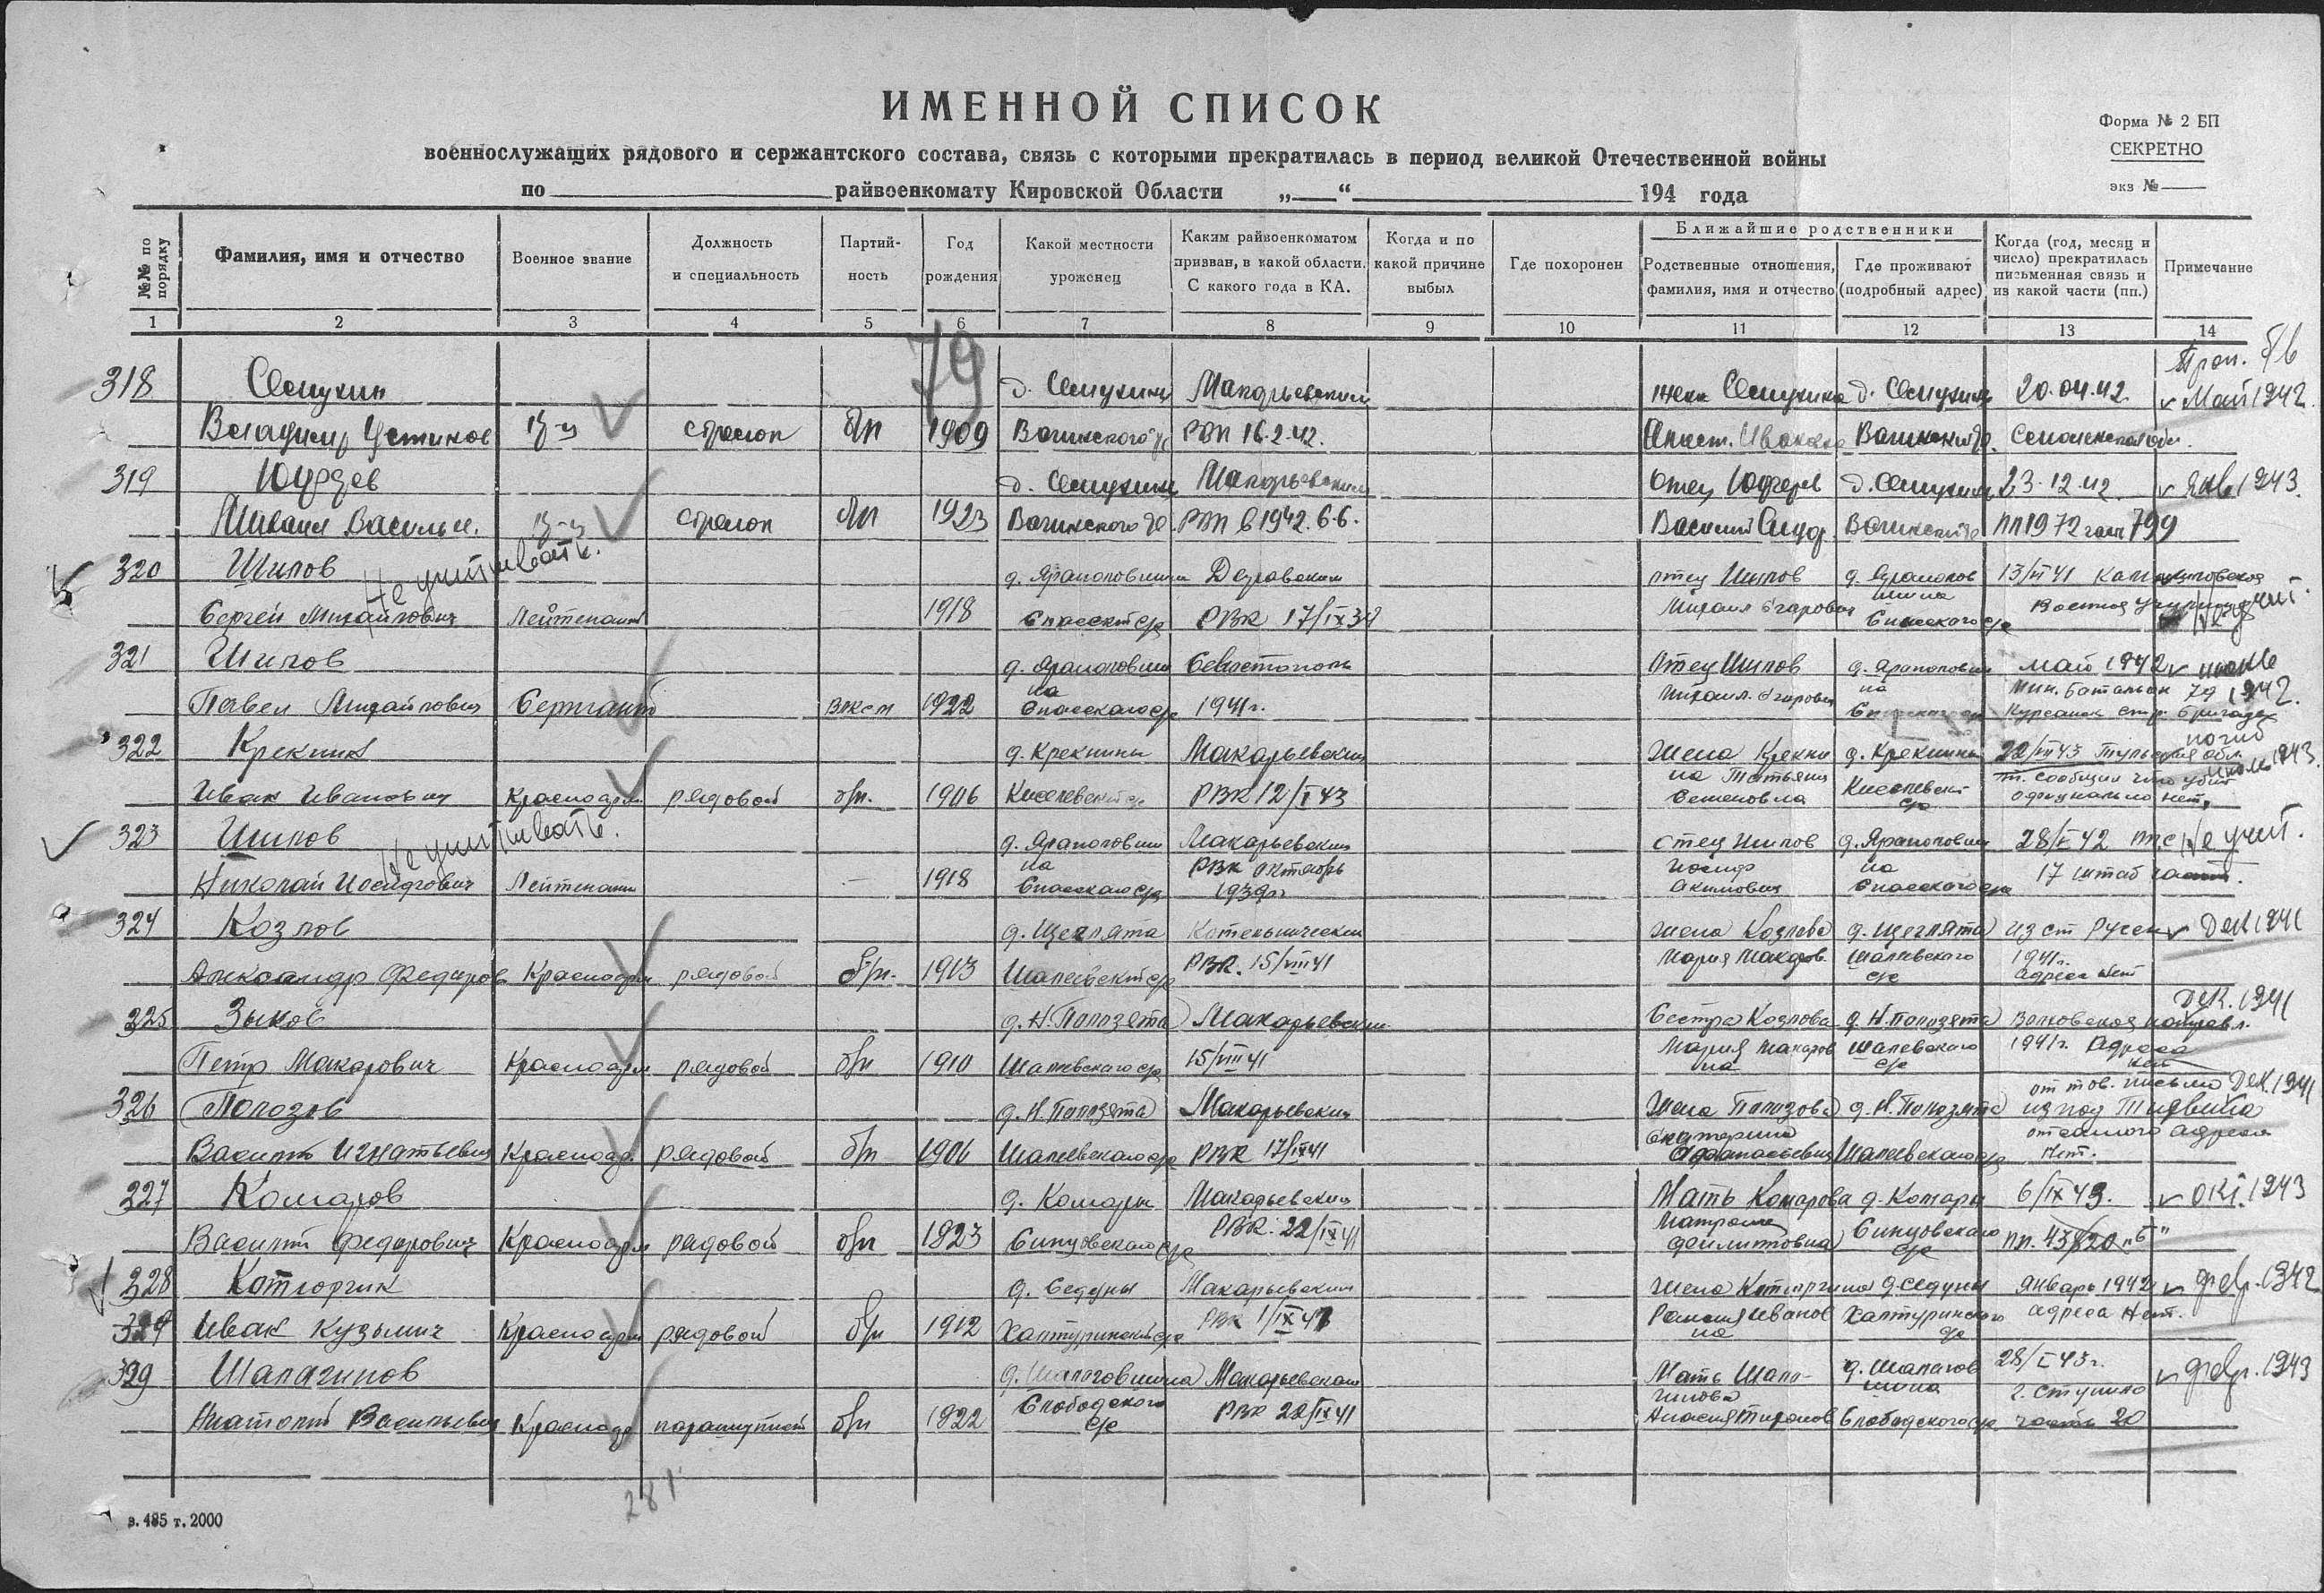 ИМЕННОЙ СПИСОК
Форма № 2 БП
военнослужащих рядового и сержантского состава, связь с которыми прекратилась в период великой Отечественной войны
СЕКРЕТНО
по райвоенкомату Кировской Области „ “ 194 года
экз №
№№ по порядку
Фамилия, имя и отчество
Военное звание
Должность и специальность
Партийность
Год рождения
Какой местности уроженец
Каким райвоенкоматом призван, в какой области. С какого года в КА.
Когда и по какой причине выбыл
Где похоронен
Ближайшие родственники
Родственные отношения, фамилия, имя и отчество
Где проживают (подробный адрес)
Когда (год, месяц и число) прекратилась письменная связь и из какой части (пп.)
Примечание
1 2 3 4 5 6 7 8 9 10 11 12 13 14
79
Проп. б/в
318 Семухин д. Семухины Макарьевским жена Семухина д. Семухины 20.04.42. Май 1942.
Владимир Устинов стрелок бп 1909 РВК 16.2.42. Анаст. Иванова
319 д. Семухины Макарьевским отец д. Семухины 23.12.42. Янв 1943.
Михаил Василье. стрелок бп 1923 РВК в 1942. 6.6. Василий Сидор. пп 1972 799
320 Шилов Не учитывать. отец Шилов 13/VI 41
Сергей Михайлович Лейтенант 1918 Спасский с/с РВК 17/IX 39 Михаил Егорович Спасского с/с Не учит.
321 Шилов Севастополь отец Шилов май 1942 июнь
Павел Михайлович Сержант ВЛКСМ 1922 Спасского с/с 1941 г. Михаил Егорович Мин. батальон 79 1942.
Курсанск стр. бригада
322 Крекнин д. Крекнины Макарьевским жена Крекни д. Крекнины 22/VII 43 Тульская обл. погиб
Иван Иванович Красноарм рядовой б/п. 1906 Киселевский с/с РВК 12/I 43 на Татьяна Семеновна Киселевский с/с т. сообщил что убит официально нет, июль 1943.
323 Шилов Не учитывать. Макарьевским отец Шилов 28/V 42 Не учит.
Николай Иосифович Лейтенант — 1918 Спасского с/с РВК октябрь 1939 г Иосиф Акимович Спасского с/с 17 штаб
324 Козлов д. Щеглята Котельническим жена Козлова д. Щеглята из ст Русск Дек 1941
Александр Федоров Красноарм рядовой б/п. 1913 Шалевский с/с РВК. 15/VIII 41 Мария Макаров. Шалевского с/с 1941 г. адреса нет
325 Зыков д. Н. Полозята Макарьевским Сестра Козлова д. Н. Полозята Волховское направл. Дек. 1941
Петр Макарович Красноарм рядовой б/п 1910 Шалевского с/с 15/VIII 41 Мария Макаровна Шалевского с/с 1941 г. Адреса нет
326 Полозов д. Н. Полозята Макарьевским жена Полозова д. Н. Полозята от тов. письмо из под Тихвина Дек. 1941
Василий Игнатьевич Красноар. рядовой б/п 1906 Шалевского с/с РВК 17/IX 41 Екатерина Афанасьевна Шалевского с/с от самого адреса нет.
327 Комаров д. Комары Макарьевским Мать Комарова д. Комары 6/IX 43. окт. 1943
Василий Федорович Красноарм рядовой б/п 1923 Синцовского с/с РВК. 22/IX 41 Матрена Синцовского с/с пп. 43820 „б“
328 Котюргин д. Седуны Макарьевским жена Котюргина д. Седуны январь 1942 февр. 1942
329 Иван Кузьмич Красноарм рядовой б/п 1912 Халтуринский с/с РВК 1/IX 41 Иванов на Халтуринского с/с адреса нет.
329 Шалагинов д. Шалаговщина Макарьевским Мать Шала- д. Шалагов щина 28/I 43 г. февр. 1943
Анатолий Васильевич Красноар парашутист б/п 1922 Слободского с/с РВК 22/IX 41 гинова Слободского с/с г. Ступино часть 20
281
з. 485 т. 2000